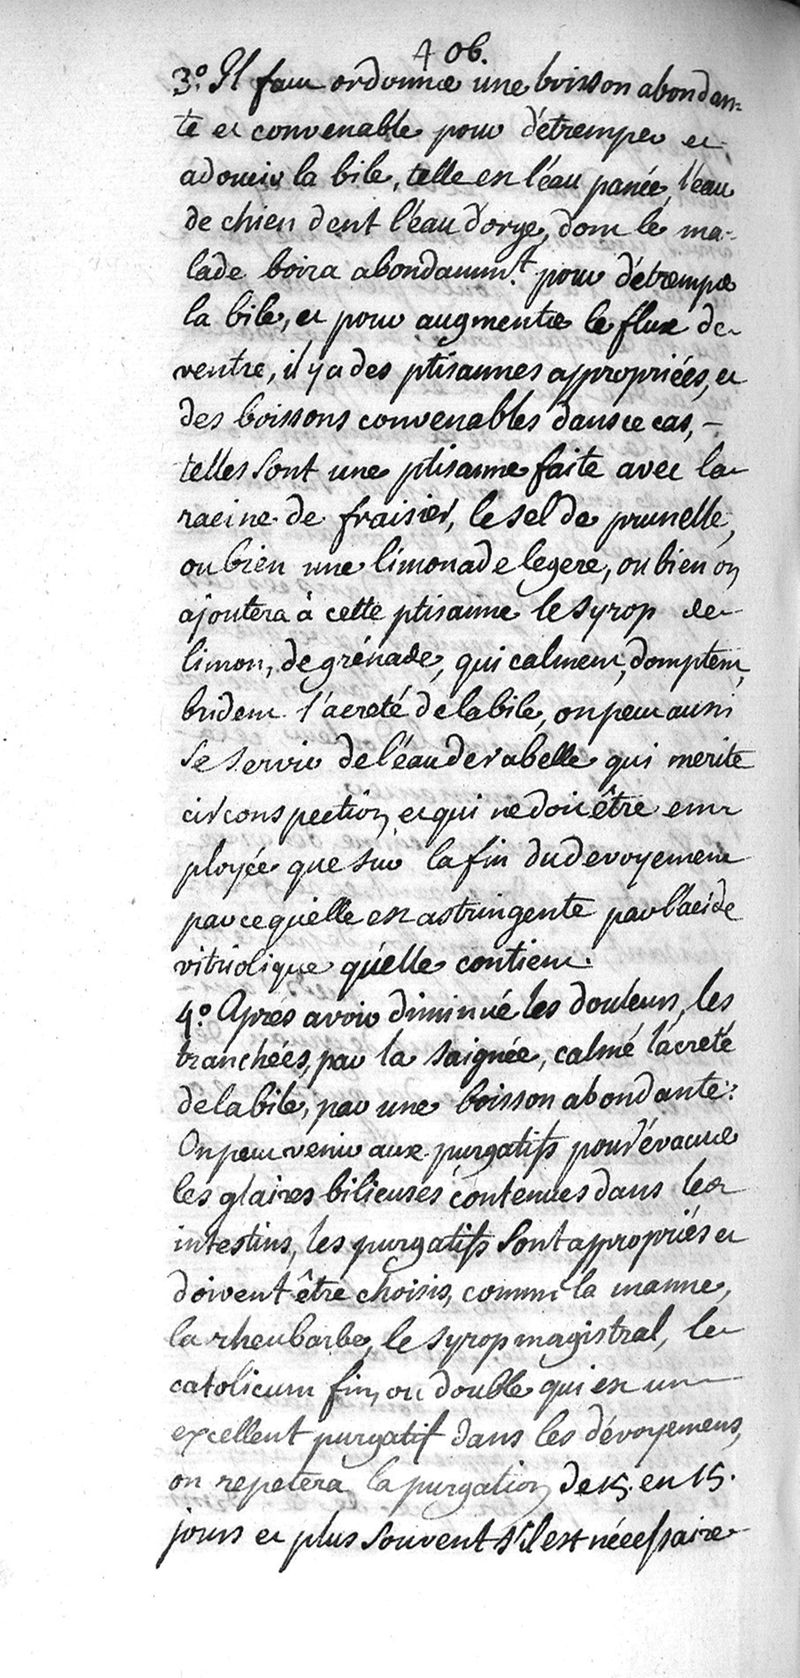 406.
3.º Il faut ordonner une boisson abondan=
te et convenable pour détremper et
adoucir la bile, telle est l'éau panée, l'éau
de chien dent l'éau d'orge, dont le ma-
lade boira abondamm.t pour détremper
la bile, et pour augmenter le flux de
ventre, il y a des ptisannes appropriées, et
des boissons convenables dans ce cas, –
telles sont une ptisanne faite avec la
racine de fraisier, le sel de prunelle,
ou bien une limonade legere, ou bien on
ajoutera à cette ptisanne le syrop de
limon, de grénade, qui calment, domptent,
brident l'acreté de la bile, on peut aussi
se servir de l'éau de rabelle qui merite
circonspection, et qui ne doit être em
ployée que sur la fin du devoyement
parce qu'elle est astringente par l'acide
vitriolique qu'elle contient.
4.º Aprés avoir diminué les douleurs, les
tranchées, par la saignée, calmé l'acreté
de la bile, par une boisson abondante:
On peut venir aux purgatifs pour évacuer
les glaires bilieuses contenues dans les
intestins, les purgatifs sont appropriés et
doivent être choisis, comme la manne,
la rheubarbe, le syrop magistral, le
catolicum fin, ou double qui est un
excellent purgatif dans les dévoyemens,
on repetera la purgation de 15. en 15.
jours et plus souvent s'il est nécessaire